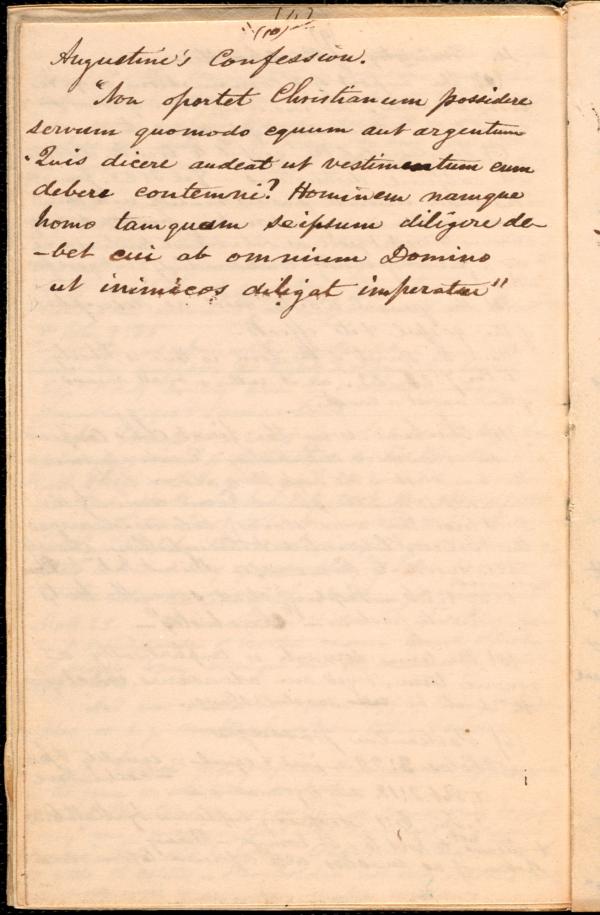 (10)
Augustine's Confession.
"Non oportet Christianum possidere
servum quomodo equum aut argentum
"Quis dicere audeat ut vestimentum eum
debere contemni? Hominem namque
homo tamquam seipsum diligere de-
-bet cui ab omnium Domino
ut inimicos diligat imperatur"